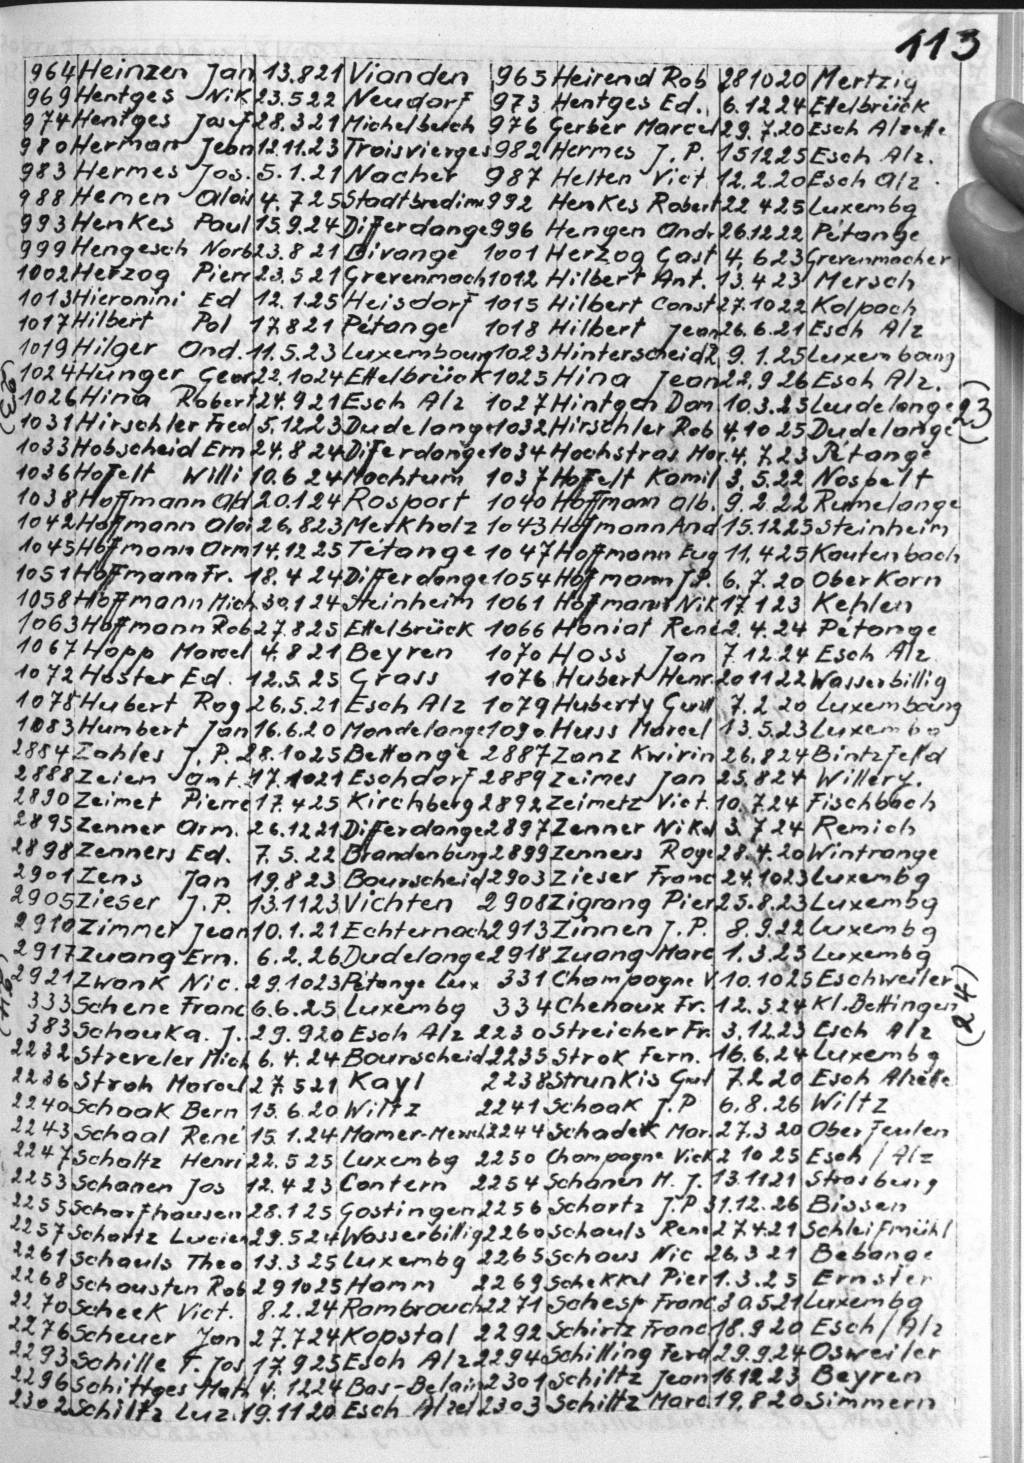 113
964 Heinzen Jan 13.8 21 Vianden 965 Heirend Rob 28 10 20 Mertzig
969 Hentges Nik 23.5 22 Neudorf 973 Hentges Ed. 6.12 24 Ettelbrück
974 Hentges Josef 28.3 21 Michelbuch 976 Gerber Marcel 29.7.20 Esch Alzette
980 Herman Jean 12.11.23 Troisvierges 982 Hermes J.P. 15 12 25 Esch Alz.
983 Hermes Jos. 5.1.21 Nacher 987 Helten Vict 12.2.20 Esch Alz
988 Hemen Alois 4.7 25 Stadtbredim 992 Henkes Robert 22 4 25 Luxembg
993 Henkes Paul 15.9.24 Differdange 996 Hengen Andr 26.12 22 Pétange
999 Hengesch Norb 23.8 21 Bivange 1001 Herzog Gast 4.6 23 Grevenmacher
1002 Herzog Pierr 23.5 21 Grevenmach 1012 Hilbert Ant. 13.4 23 Mersch
1013 Hieronini Ed 12.1.25 Heisdorf 1015 Hilbert Const 27.10 22 Kolpach
1017 Hilbert Pol 17.8 21 Pétange 1018 Hilbert Jean 26.6.21 Esch Alz
1019 Hilger And. 11.5.23 Luxembourg 1023 Hinterscheid R 9.1.25 Luxembourg
(23) 1024 Hunger Geor 22.10 24 Ettelbrück 1025 Hina Jean 22.9 26 Esch Alz.
1026 Hina Robert 24.9 21 Esch Alz 1027 Hintgen Dom 10.3.25 Leudelange (23)
1031 Hirschler Fred 5.12 23 Dudelange 1032 Hirschler Rob 4.10 25 Dudelange
1033 Hobscheid Ern 24.8 24 Differdange 1034 Hochstras Mar. 4.7.23 Pétange
1036 Hofelt Willi 10.6 24 Machtum 1037 Hoffelt Kamil 3.5.22 Nospelt
1038 Hoffmann Ad 20.1 24 Rosport 1040 Hoffmann Alb. 9.2.22 Rumelange
1042 Hoffmann Aloi 26.8 23 Merkholz 1043 Hoffmann And 15.12 25 Steinheim
1045 Hoffmann Arm 14.12 25 Tétange 1047 Hoffmann Eug 11.4 25 Kautenbach
1051 Hoffmann Fr. 18.4 24 Differdange 1054 Hoffmann J.P. 6.7.20 Oberkorn
1058 Hoffmann Mich 30.1 24 Steinheim 1061 Hoffmann Nik 17.1 23 Kehlen
1063 Hoffmann Rob 27.8 25 Ettelbrück 1066 Honiat René 2.4.24 Pétange
1067 Hopp Marcel 4.8 21 Beyren 1070 Hoss Jan 7.12.24 Esch Alz
1072 Hoster Ed. 12.5.25 Grass 1076 Hubert Henr. 20 11 22 Wasserbillig
1078 Hubert Rog 26.5.21 Esch Alz 1079 Huberty Gust 7.2 20 Luxembourg
1083 Humbert Jan 16.6.20 Mondelange 1090 Huss Marcel 13.5.23 Luxembg
2884 Zahles J.P. 28.10 25 Bettange 2887 Zanz Kwirin 26.8 24 Bintzfeld
2888 Zeien Ant. 17.10 21 Eschdorf 2889 Zeimes Jan 25.8 24 Willery.
2890 Zeimet Pierre 17.4 25 Kirchberg 2892 Zeimetz Vict. 10.7.24 Fischbach
2895 Zenner Arm. 26.12 21 Differdange 2897 Zenner Nikol 3.7 24 Remich
2898 Zenners Ed. 7.5.22 Brandenburg 2899 Zenners Roge 28.4.20 Wintrange
2901 Zens Jan 19.8 23 Bourscheid 2903 Zieser Franc 24.10 23 Luxembg
2905 Zieser J.P. 13.11 23 Vichten 2908 Zigrang Pier 25.8.23 Luxembg
2910 Zimmer Jean 10.1.21 Echternach 2913 Zinnen J.P. 8.9.22 Luxembg
2917 Zuang Ern. 6.2.26 Dudelange 2918 Zuang Marc 1.3.25 Luxembg
(24) 2921 Zwank Nic. 29.10 23 Pétange Lux 331 Champagne V. 10.10 25 Eschweiler
333 Schene Franc 6.6.25 Luxembg 334 Chenaux Fr. 12.3.24 Kl. Bettingen (24)
383 Schauka. J. 29.9 20 Esch Alz 2230 Streicher Fr. 3.12.23 Esch Alz
2232 Streveler Mich 6.4.24 Bourscheid 2235 Strok Fern. 16.6.24 Luxembg
2236 Stroh Marcel 27.5 21 Kayl 2238 Strunkis Gust 7.2 20 Esch Alzette
2240 Schaak Bern 15.6.20 Wiltz 2241 Schaak J.P 6.8.26 Wiltz
2243 Schaal René 15.1.24 Mamer-Mersch 2244 Schadek Mar. 27.3 20 Oberfeulen
2247 Schaltz Henri 22.5 25 Luxembg 2250 Champagne Vick 2 10 25 Esch/Alz
2253 Schanen Jos 12.4 23 Contern 2254 Schanen M.J. 13.11 21 Strasburg
2255 Scharfhausen 28.1 25 Gostingen 2256 Schartz J.P 31.12.26 Bissen
2257 Schartz Lucien 29.5 24 Wasserbillig 2260 Schauls René 27.4.21 Schleifmühl
2261 Schauls Theo 13.3 25 Luxembg 2265 Schaus Nic 26.3 21 Bebange
2268 Schausten Rob 29 10 25 Hamm 2269 Schekkel Pier 1.3.25 Ernster
2270 Scheek Vict. 8.2.24 Rambrouch 2271 Schesf Franc. 30.5 21 Luxembg
2276 Scheuer Jan 27.7 24 Kopstal 2292 Schirtz Franc 18.9 20 Esch/Alz
2293 Schille F. Jos 17.9 25 Esch Alz 2294 Schilling Ferd 29.9.24 Osweiler
2296 Schittges Math 4.12 24 Bas-Belain 2301 Schiltz Jean 16.12 23 Beyren
2302 Schiltz Luz. 19.11 20 Esch Alzet 2303 Schiltz Marc. 19.8 20 Simmern